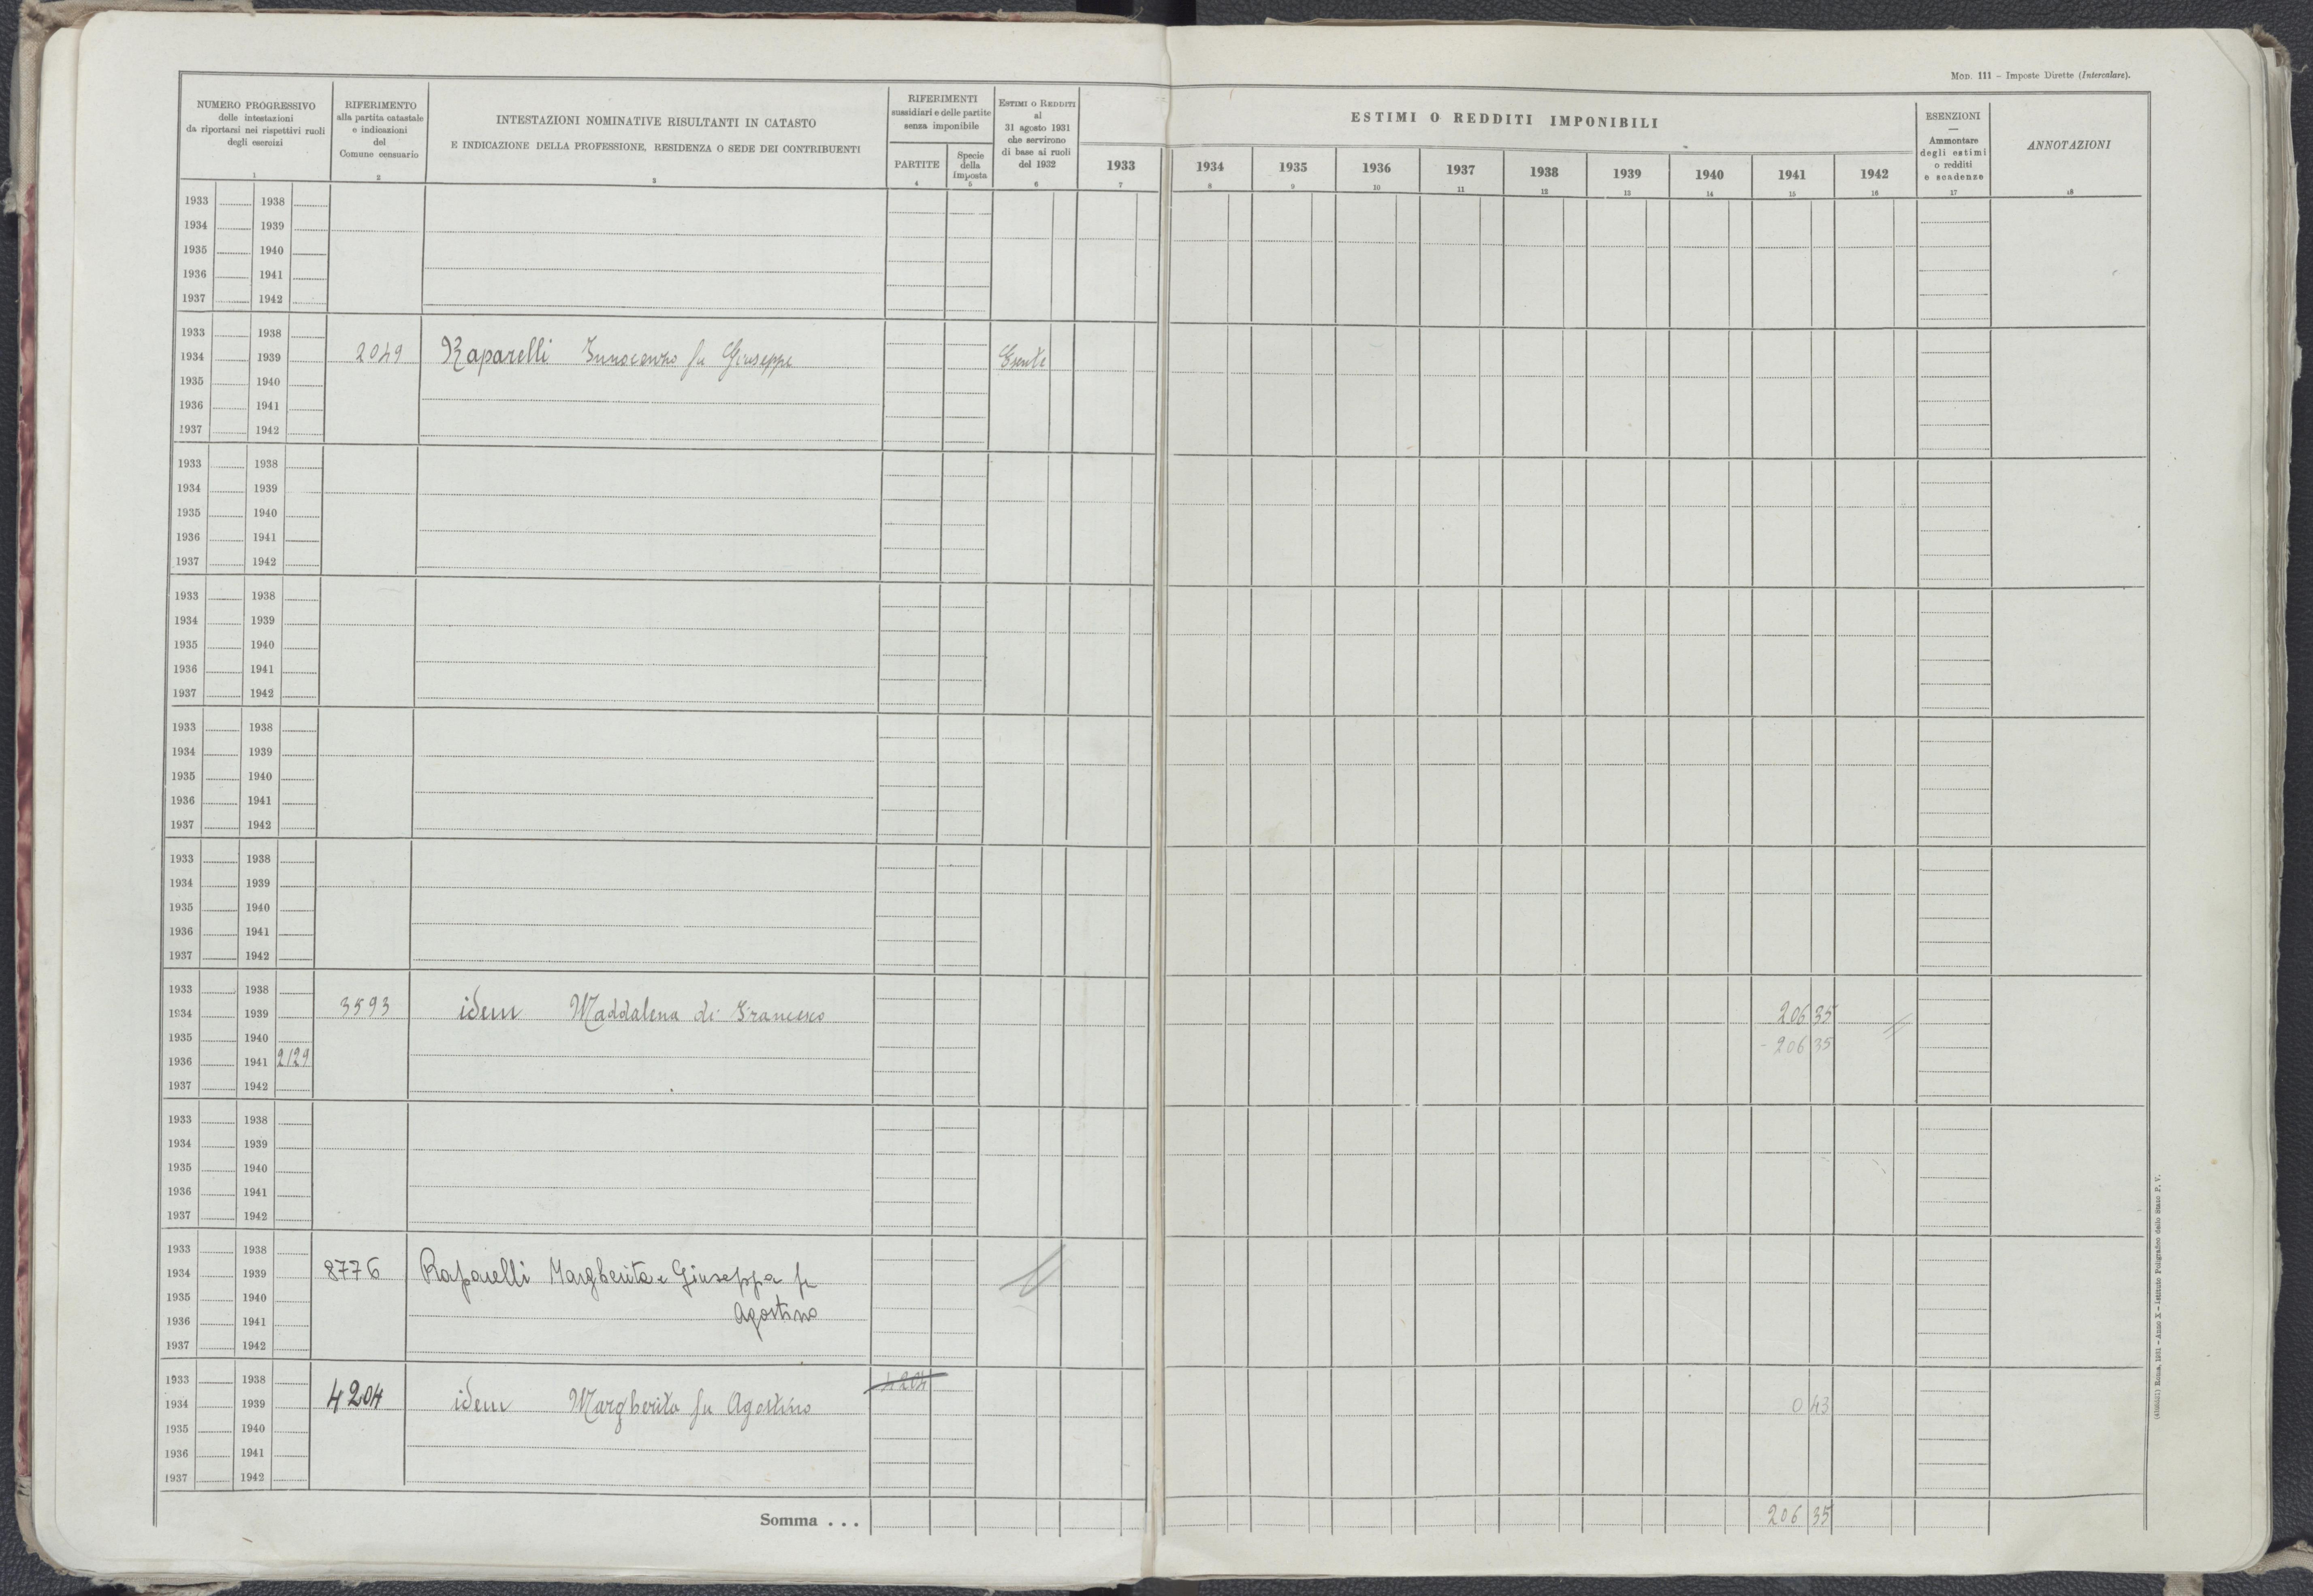 MOD. 111 – Imposte Dirette (Intercalare).
NUMERO PROGRESSIVO
delle intestazioni
da riportarsi nei rispettivi ruoli
degli esercizi
1
RIFERIMENTO
alla partita catastale
e indicazioni
del
Comune censuario
2
INTESTAZIONI NOMINATIVE RISULTANTI IN CATASTO
E INDICAZIONE DELLA PROFESSIONE, RESIDENZA O SEDE DEI CONTRIBUENTI
3
RIFERIMENTI
sussidiari e delle partite
senza imponibile
PARTITE
4
Specie
della
imposta
5
ESTIMI O REDDITI
al
31 agosto 1931
che servirono
di base ai ruoli
del 1932
6
ESTIMI O REDDITI IMPONIBILI
1933 1934 1935 1936 1937 1938 1939 1940 1941 1942
7 8 9 10 11 12 13 14 15 16
ESENZIONI
—
Ammontare
degli estimi
o redditi
e scadenze
17
ANNOTAZIONI
18
1933 1938
1934 1939
1935 1940
1936 1941
1937 1942
1933 1938
1934 1939 2049 Raparelli Innocenzo fu Giuseppe Esente
1935 1940
1936 1941
1937 1942
1933 1938
1934 1939
1935 1940
1936 1941
1937 1942
1933 1938
1934 1939
1935 1940
1936 1941
1937 1942
1933 1938
1934 1939
1935 1940
1936 1941
1937 1942
1933 1938
1934 1939
1935 1940
1936 1941
1937 1942
1933 1938
1934 1939 3593 idem Maddalena di Francesco 206 35
1935 1940 - 206 35
1936 1941 2129
1937 1942
1933 1938
1934 1939
1935 1940
1936 1941
1937 1942
1933 1938
1934 1939 8776 Raparelli Margherita e Giuseppa fu
1935 1940
1936 1941 Agostino
1937 1942
1933 1938 4204
1934 1939 4204 idem Margherita fu Agostino 0 43
1935 1940
1936 1941
1937 1942
Somma . . . 206 35
Roma, 1931 – Anno X – Istituto Poligrafico dello Stato P. V.